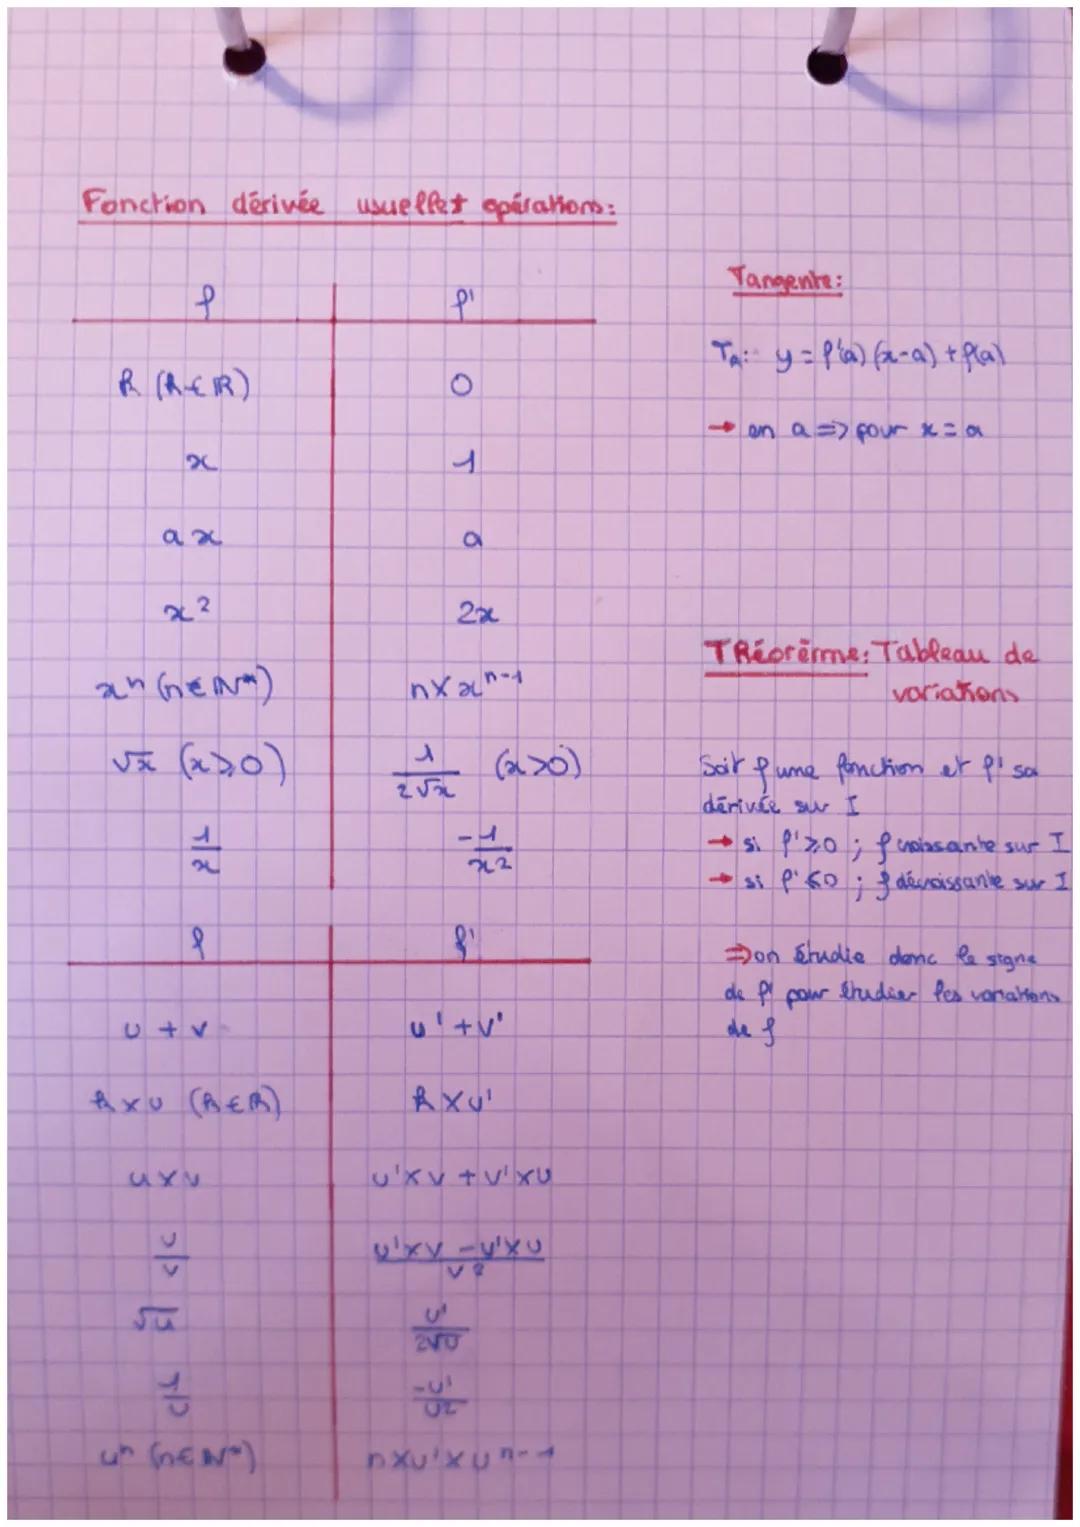 Fonction dérivée usuelles et opérations:
f f'
k (k∈ℝ) 0
x 1
ax a
x² 2x
xⁿ (n∈ℕ*) n×xⁿ⁻¹
√x (x⩾0) 1/(2√x) (x>0)
1/x -1/x²
f f'
u + v u' + v'
k×u (k∈ℝ) k×u'
u×v u'×v + v'×u
u/v (u'×v - v'×u)/v²
√u u'/(2√u)
1/u -u'/u²
uⁿ (n∈ℕ*) n×u'×uⁿ⁻¹
Tangente:
Ta: y = f'(a)(x-a) + f(a)
→ en a => pour x = a
Théorème: Tableau de
variations
Soit f une fonction et f' sa
dérivée sur I
→ si f'⩾0 ; f croissante sur I
→ si f'⩽0 ; f décroissante sur I
⇒ on étudie donc le signe
de f' pour étudier les variations
de f